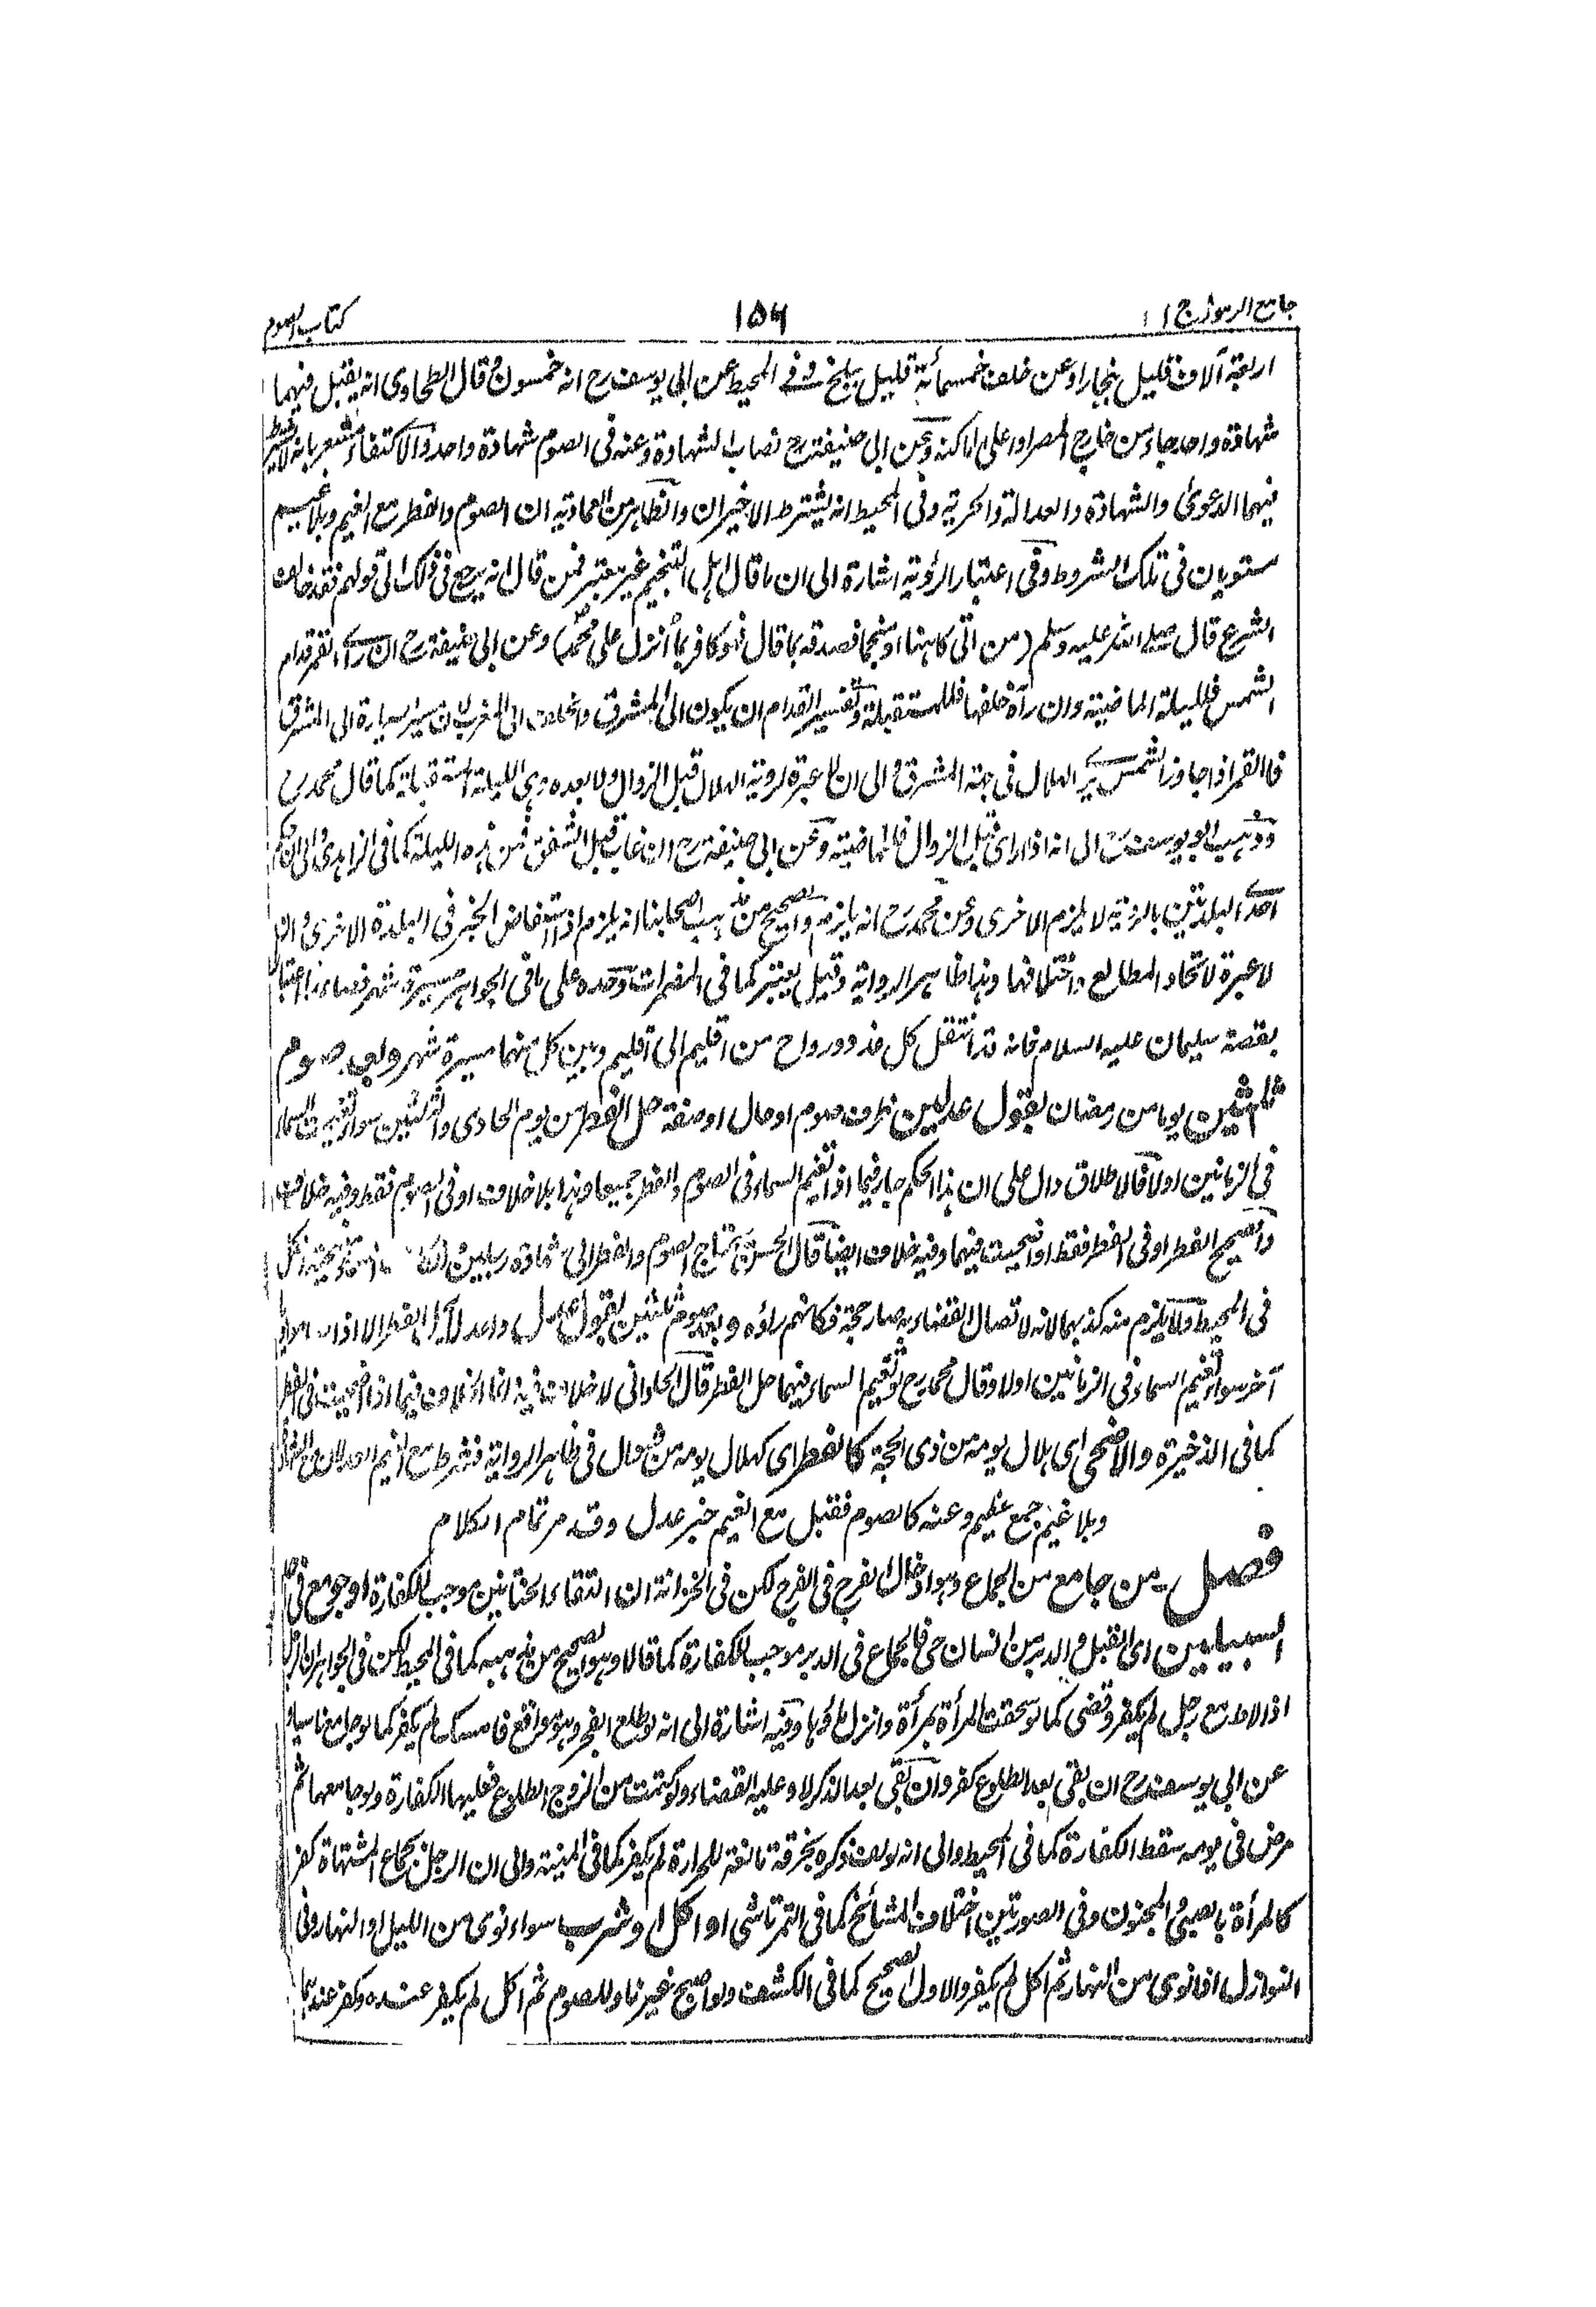 جامع الرموز ج ١
١٥٦
كتاب الصوم
اربعة آلاف قليل ببخارا وعن خلف خمسمائة قليل ببلخ وفي المحيط عن ابي يوسف رح انه خمسون وقال الطحاوى انه يقبل فيهما
شهادة واحد جاء من خارج المصر او اعلى اماكنه وعن ابى حنيفة رح نصاب الشهادة وعنه فى الصوم شهادة واحد والاكتفاء مشعر بانه لا يشترط
فيهما الدعوى والشهادة والعدالة والحرية وفى المحيط انه يشترط الاخيران والظاهر من العمادية ان الصوم والفطر مع الغيم وبلا غيم
مستويان فى تلك الشروط وفى اعتبار الرؤية اشارة الى ان ما قال اهل التنجيم غير معتبر فمن قال انه يرجع فى ذلك الى قولهم فقد خالف
الشرع قال صلى الله عليه وسلم (من اتى كاهنا او منجما فصدقه بما قال فهو كافر بما أنزل على محمد) وعن ابى حنيفة رح ان رأى القمر قدام
الشمس فلليلة الماضية وان رآه خلفها فللمستقبلة وتفسير القدام ان يكون الى المشرق والخلف الى المغرب لان سير السيارة الى المشرق
فالقمر اذا جاوز الشمس يرى الهلال فى جهة المشرق والى ان لا عبرة لرؤية الهلال قبل الزوال ولا بعده وهى لليلة المستقبلة كما قال محمد رح
وذهب ابو يوسف رح الى انه اذا رأى قبل الزوال فللماضية وعن ابى حنيفة رح ان غاب قبل الشفق فمن هذه الليلة كما فى الزاهدى والى ان حكم
احدى البلدتين بالرؤية لا يلزم الاخرى وعن محمد رح انه يلزم والصحيح من مذهب اصحابنا انه يلزم اذا استفاض الخبر فى البلدة الاخرى والى ان
لا عبرة لاتحاد المطالع واختلافها وهذا ظاهر الرواية وقيل يعتبر كما فى المضمرات وحده على ما فى الجواهر مسيرة شهر فصاعدا اعتبارا
بقصة سليمان عليه السلام فانه قد انتقل كل غدو ورواح من اقليم الى اقليم وبين كل منهما مسيرة شهر وبعد صوم
ثلثين يوما من رمضان بقول عدلين ظرف صوم او حال او صفة حل الفطر من يوم الحادى والثلثين سواء تغيمت السماء
فى الزمانين اولا فالاطلاق دال على ان هذا الحكم جار فيما اذا تغيم السماء فى الصوم والفطر جميعا وهذا بلا خلاف او فى الصوم فقط وفيه خلاف
والصحيح الفطر او فى الفطر فقط او اضحيت فيهما وفيه خلاف ايضا قال الحسن يحتاج الصوم والفطر الى شهادة رجلين
فى المحيط ولا يلزم منه كذبهما لانه لاتصال القضاء به صار حجة فكانهم رأوه وبعد صوم ثلثين بقول عدل واحد لا يحل الفطر الا اذا
آخر سواء تغيم السماء فى الزمانين اولا وقال محمد رح لو تغيم السماء فيهما حل الفطر قال الحلوانى لا خلاف فيه انما الخلاف فيما اذا اضحيت فى الفطر
كما فى الذخيرة والاضحى اى هلال يومه من ذى الحجة كالفطر اى كهلال يومه من شوال فى ظاهر الرواية فشرط مع الغيم العدلان مع الشهادة
وبلا غيم جمع عظيم وعنه كالصوم فقبل مع الغيم خبر عدل وقد مر تمام الكلام
فصل من جامع من الجماع وهو ادخال الفرج فى الفرج لكن فى الخزانة ان التقاء الختانين موجب للكفارة او جومع فى احد
السبيلين اى القبل والدبر من انسان حى فالجماع فى الدبر موجب للكفارة كما قالا وهو الصحيح من مذهبه كما فى المحيط لكن فى الجواهر ان الرجل
اذا لاط مع رجل لم يكفر وقضى كما لو سحقت المرأة بمرأة وانزل ماؤها وفيه اشارة الى انه لو طلع الفجر وهو مواقع فامسك لم يكفر كما لو جامع ناسيا
عن ابى يوسف رح ان بقى بعد الطلوع كفر وان بقى بعد الذكر لا وعليه القضاء ولو كتمت من الزوج الطلوع فعليها الكفارة ولو جامعها ثم
مرض فى يومه سقط الكفارة كما فى المحيط والى انه لو لف ذكره بخرقة مانعة للحرارة لم يكفر كما فى المنية والى ان الرجل بجماع المشتهاة كفر
كالمرأة بالصبى والمجنون وفى الصورتين اختلاف المشائخ كما فى التمرتاشى او اكل او شرب سواء نوى من الليل او النهار وفى
النوازل اذا نوى من النهار ثم اكل لم يكفر والاول الصحيح كما فى الكشف ولو اصبح غير ناو للصوم ثم اكل لم يكفر عنده وكفر عندهما